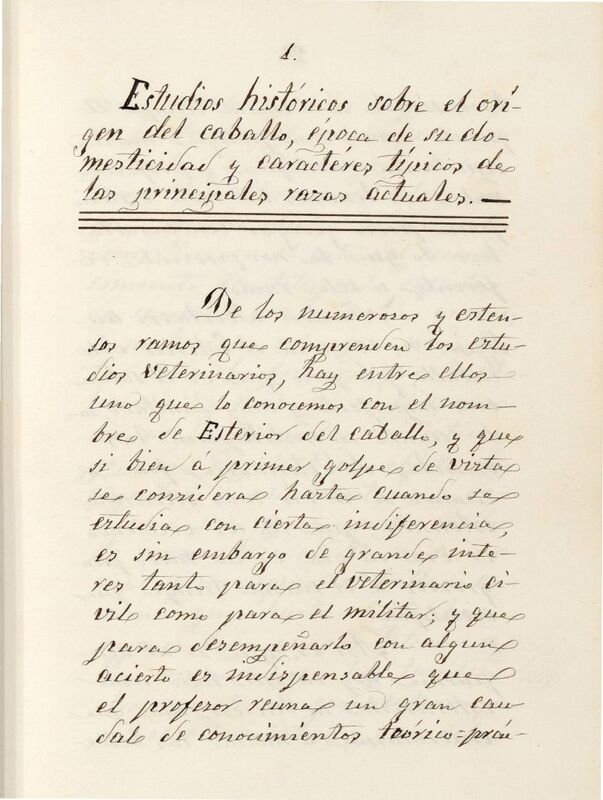 1.
Estudios históricos sobre el orí-
gen del caballo, época de su do-
mesticidad y caractéres típicos de
las principales razas actuales.—
De los numerosos y esten-
sos ramos que comprenden los estu-
dios veterinarios, hay entre ellos
uno que lo conocemos con el nom-
bre de Esterior del caballo, y que
si bien á primer golpe de vista
se considera hasta cuando se
estudia con cierta indiferencia,
es sin embargo de grande inte-
res tanto para el veterinario ci-
vil como para el militar; y que
para desempeñarlo con algun
acierto es indispensable que
el profesor reuna un gran cau-
dal de conocimientos teórico=prác-